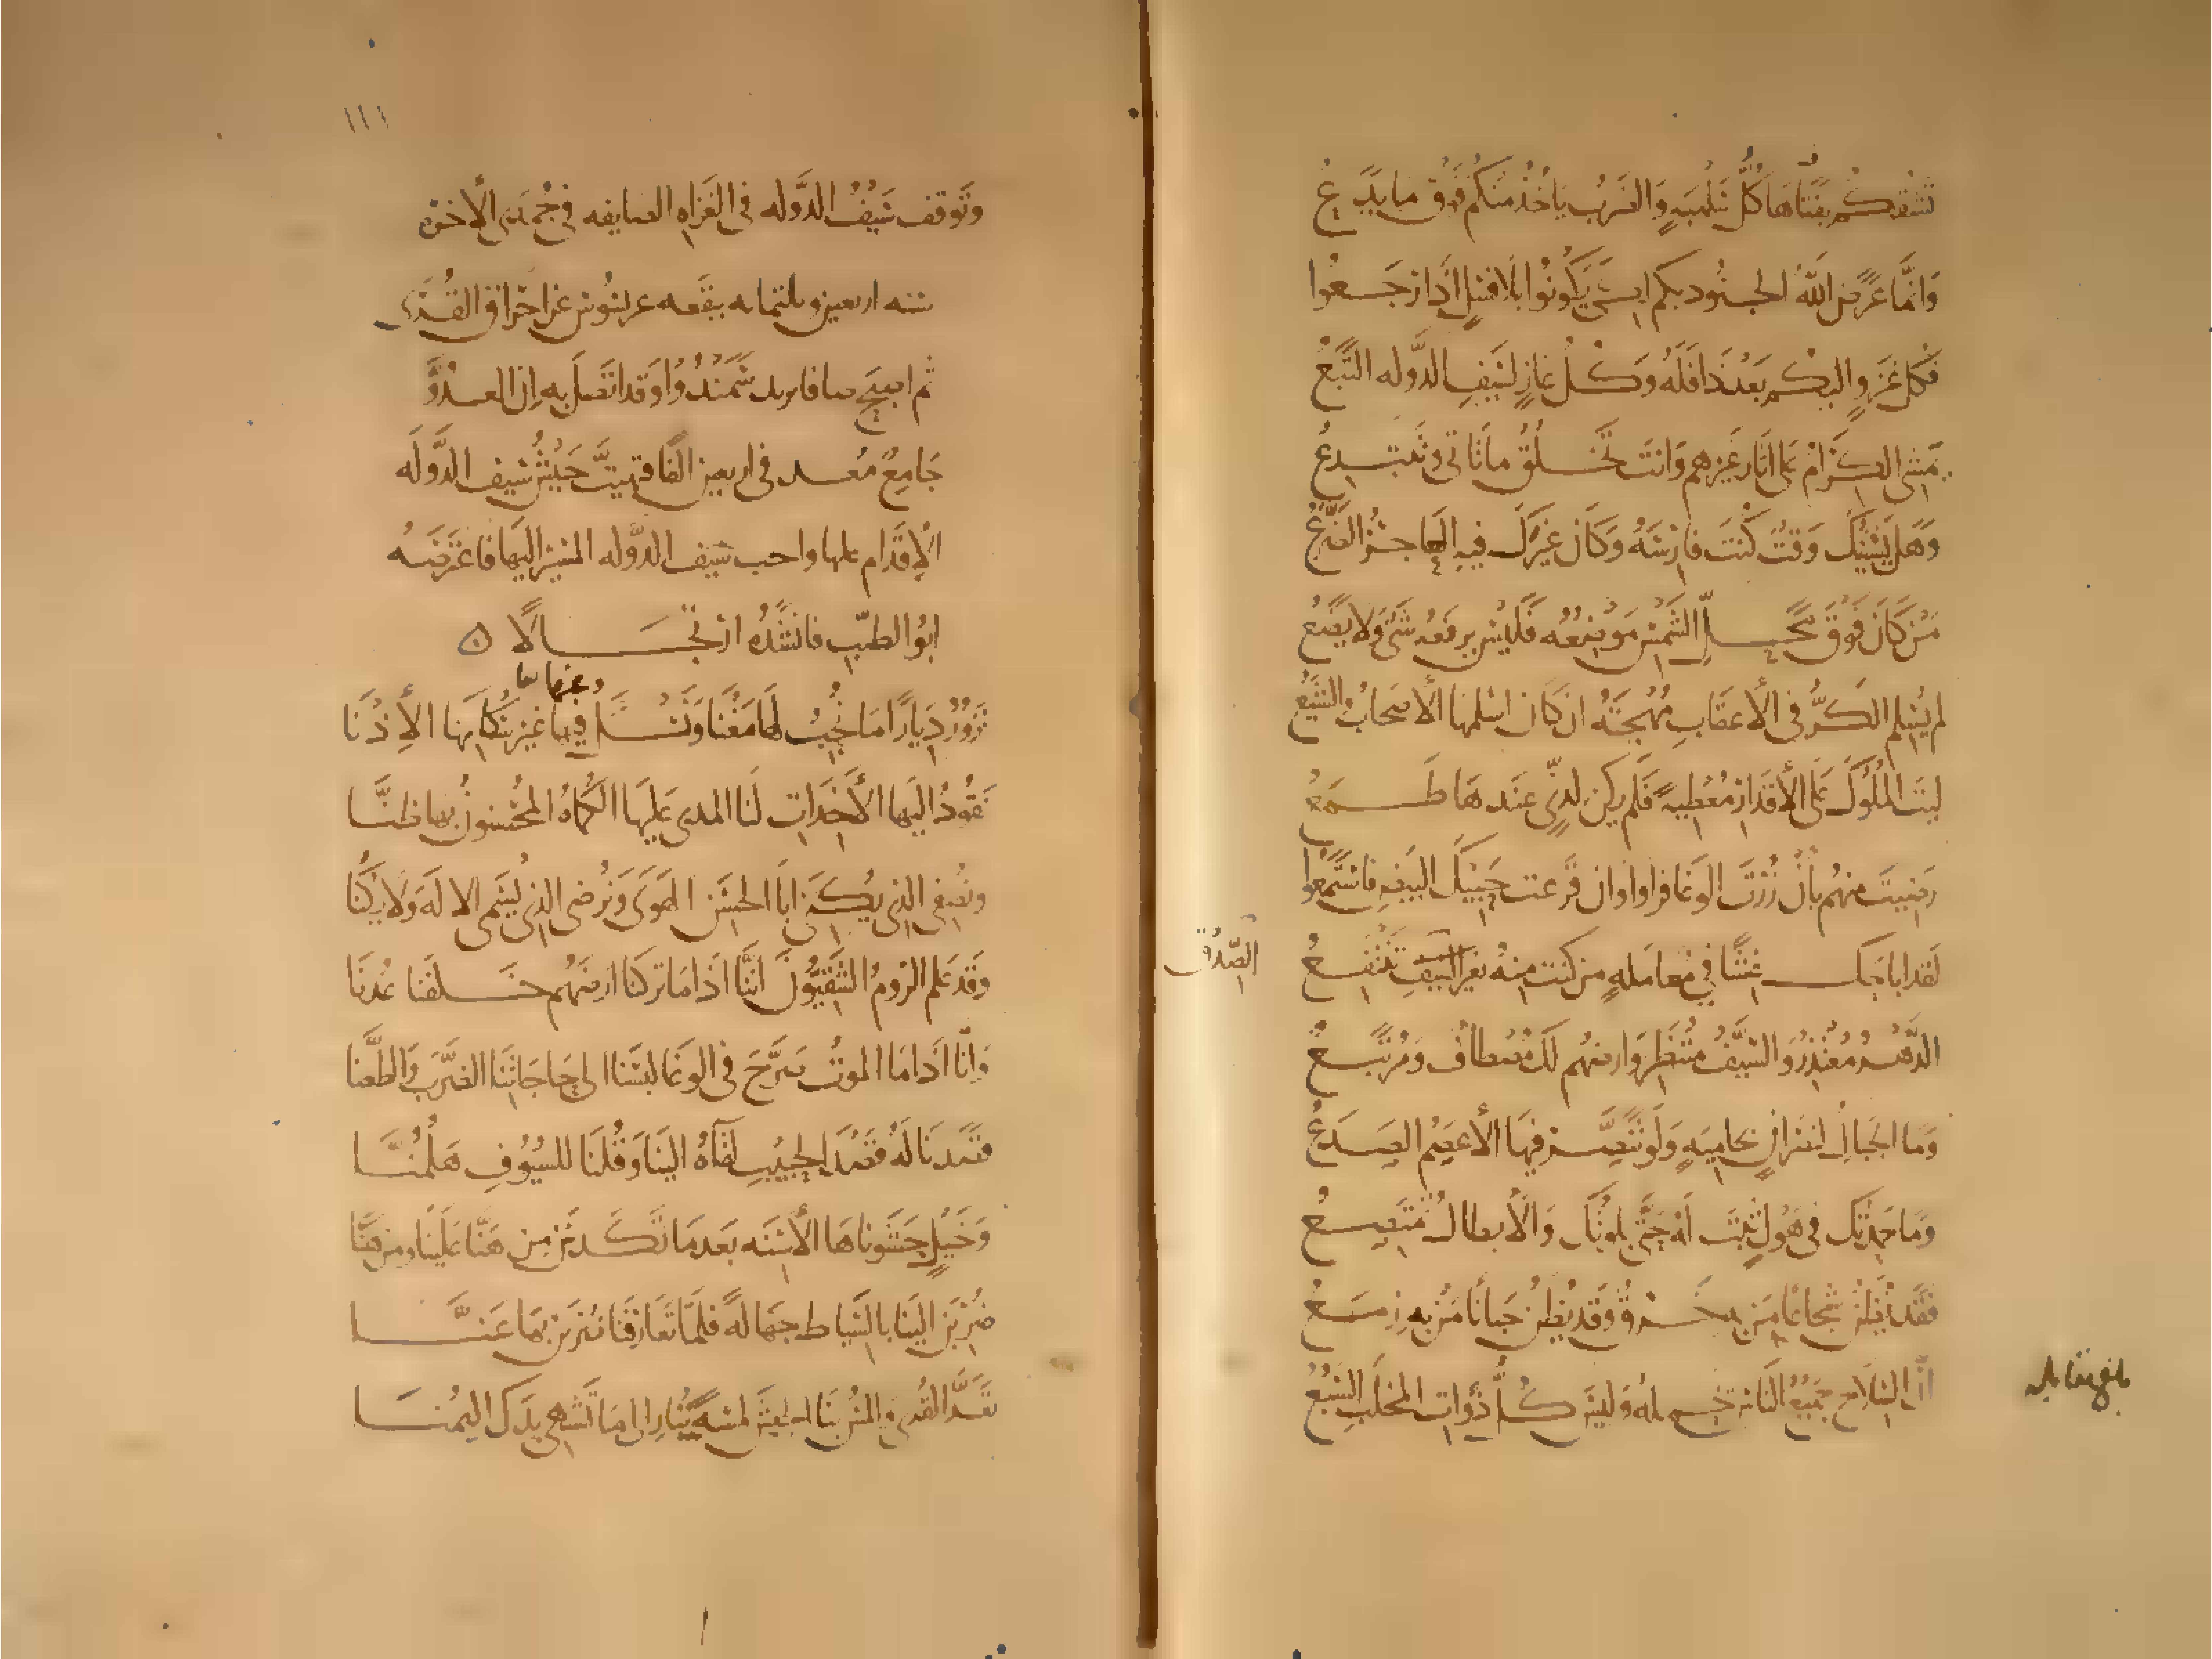 تشقكم بفتاها كل سلهبة والضرب ياخذ منكم فوق ما يدع
وانما عرض الله الجنود بكم لكي يكونوا بلا فسل اذا رجعوا
فكل غزو اليكم بعد ذا فله وكل غاز لسيف الدوله التبع
يمشى الكرام على اثار غيرهم وانت تخلق ما تاتى وتبتدع
وهل يشينك وقت كنت فارسه وكان غيرك فيه العاجز الضرع
من كان فوق محل الشمس موضعه فليس يرفعه شى ولا يضع
لم يسلم الكر فى الاعقاب مهجته ان كان اسلمها الاصحاب والشيع
ليت الملوك على الاقدار معطية فلم يكن لدنى عندها طمع
رضيت منهم بان زرت الوغا فراوا وان قرعت حبيك البيض فاستمعوا
لقد اباحك غشا في معاملة من كنت منه بغير السيف تنتفع
الصدق
الدهر معتذر والسيف منتظر وارضهم لك مصطاف ومرتبع
وما الجبال لنصران بحامية ولو تنصر فيها الاعصم الصدع
وما حمدتك فى هول ثبت له حتى بلوتك والابطال تمتصع
فقد يظن شجاعا من به خرق وقد يظن جبانا من به زمع
ان السلاح جميع الناس تحمله وليس كل ذوات المخلب السبع
١١١
وتوقف سيف الدوله فى الغزاه الصايفه فى جمدى الاخره
سنه اربعين وثلثمايه بقعه عربسوس غزا احراق القرى
ثم اصبح صافا يريد سمندوا وقد اتصل به ان العدو
جامع معد فى اربعين الفا فتهيب جيش سيف الدوله
الاقدام عليها واحب سيف الدوله المسير اليها فاعترضه
ابو الطيب فانشده ارتجالا
نزور ديارا ما نحب لها مغنا ونسل فيها غير سكانها الاذنا
نقود اليها الاخذات لنا المدى عليها الكماه المحسنون بها ظنا
ونصفى الذى يكنى ابا الحسن الهوى ونرضى الذى يسمى الاله ولا يكنا
وقد علم الروم الشقيون اننا اذا ما تركنا ارضهم خلفنا عدنا
وانا اذا ما الموت صرح فى الوغا لبسنا الى حاجاتنا الضرب والطعنا
قصدنا له قصد الحبيب لقاه الينا وقلنا للسيوف هلمنا
وخيل حشوناها الاسنه بعدما تكدسن من هنا علينا ومن هنا
ضربن الينا بالسياط جهالة فلما تعارفنا ضربن بها عنا
تعد القرى والمس بنا الجيش لمسة نبار الى ما تشتهى يدك اليمنا